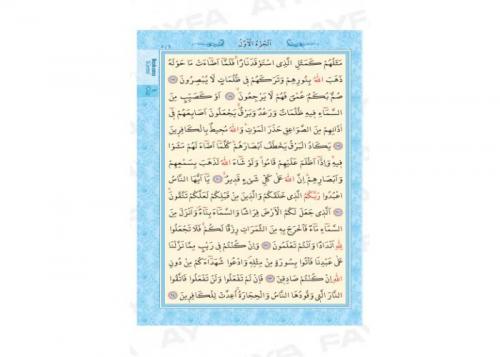 اَلْجُزْءُ الْاَوَّلُ
مَثَلُهُمْ كَمَثَلِ الَّذِى اسْتَوْقَدَ نَارًا فَلَمَّٓا اَضَٓاءَتْ مَا حَوْلَهُ
ذَهَبَ اللّٰهُ بِنُورِهِمْ وَتَرَكَهُمْ فِى ظُلُمَاتٍ لَا يُبْصِرُونَ
صُمٌّ بُكْمٌ عُمْىٌ فَهُمْ لَا يَرْجِعُونَ اَوْ كَصَيِّبٍ مِنَ
السَّمَٓاءِ فِيهِ ظُلُمَاتٌ وَرَعْدٌ وَبَرْقٌ يَجْعَلُونَ اَصَابِعَهُمْ فِٓى
اٰذَانِهِمْ مِنَ الصَّوَاعِقِ حَذَرَ الْمَوْتِ وَاللّٰهُ مُحِيطٌ بِالْكَافِرِينَ
يَكَادُ الْبَرْقُ يَخْطَفُ اَبْصَارَهُمْ كُلَّمَٓا اَضَٓاءَ لَهُمْ مَشَوْا
فِيهِ وَاِذَٓا اَظْلَمَ عَلَيْهِمْ قَامُوا وَلَوْ شَٓاءَ اللّٰهُ لَذَهَبَ بِسَمْعِهِمْ
وَاَبْصَارِهِمْ اِنَّ اللّٰهَ عَلٰى كُلِّ شَىْءٍ قَدِيرٌ يَٓا اَيُّهَا النَّاسُ
اعْبُدُوا رَبَّكُمُ الَّذِى خَلَقَكُمْ وَالَّذِينَ مِنْ قَبْلِكُمْ لَعَلَّكُمْ تَتَّقُونَ
اَلَّذِى جَعَلَ لَكُمُ الْاَرْضَ فِرَاشًا وَالسَّمَٓاءَ بِنَٓاءً وَاَنْزَلَ مِنَ
السَّمَٓاءِ مَٓاءً فَاَخْرَجَ بِهِ مِنَ الثَّمَرَاتِ رِزْقًا لَكُمْ فَلَا تَجْعَلُوا
لِلّٰهِ اَنْدَادًا وَاَنْتُمْ تَعْلَمُونَ وَاِنْ كُنْتُمْ فِى رَيْبٍ مِمَّا نَزَّلْنَا
عَلٰى عَبْدِنَا فَأْتُوا بِسُورَةٍ مِنْ مِثْلِهِ وَادْعُوا شُهَدَٓاءَكُمْ مِنْ دُونِ
اللّٰهِ اِنْ كُنْتُمْ صَادِقِينَ فَاِنْ لَمْ تَفْعَلُوا وَلَنْ تَفْعَلُوا فَاتَّقُوا
النَّارَ الَّتِى وَقُودُهَا النَّاسُ وَالْحِجَارَةُ اُعِدَّتْ لِلْكَافِرِينَ